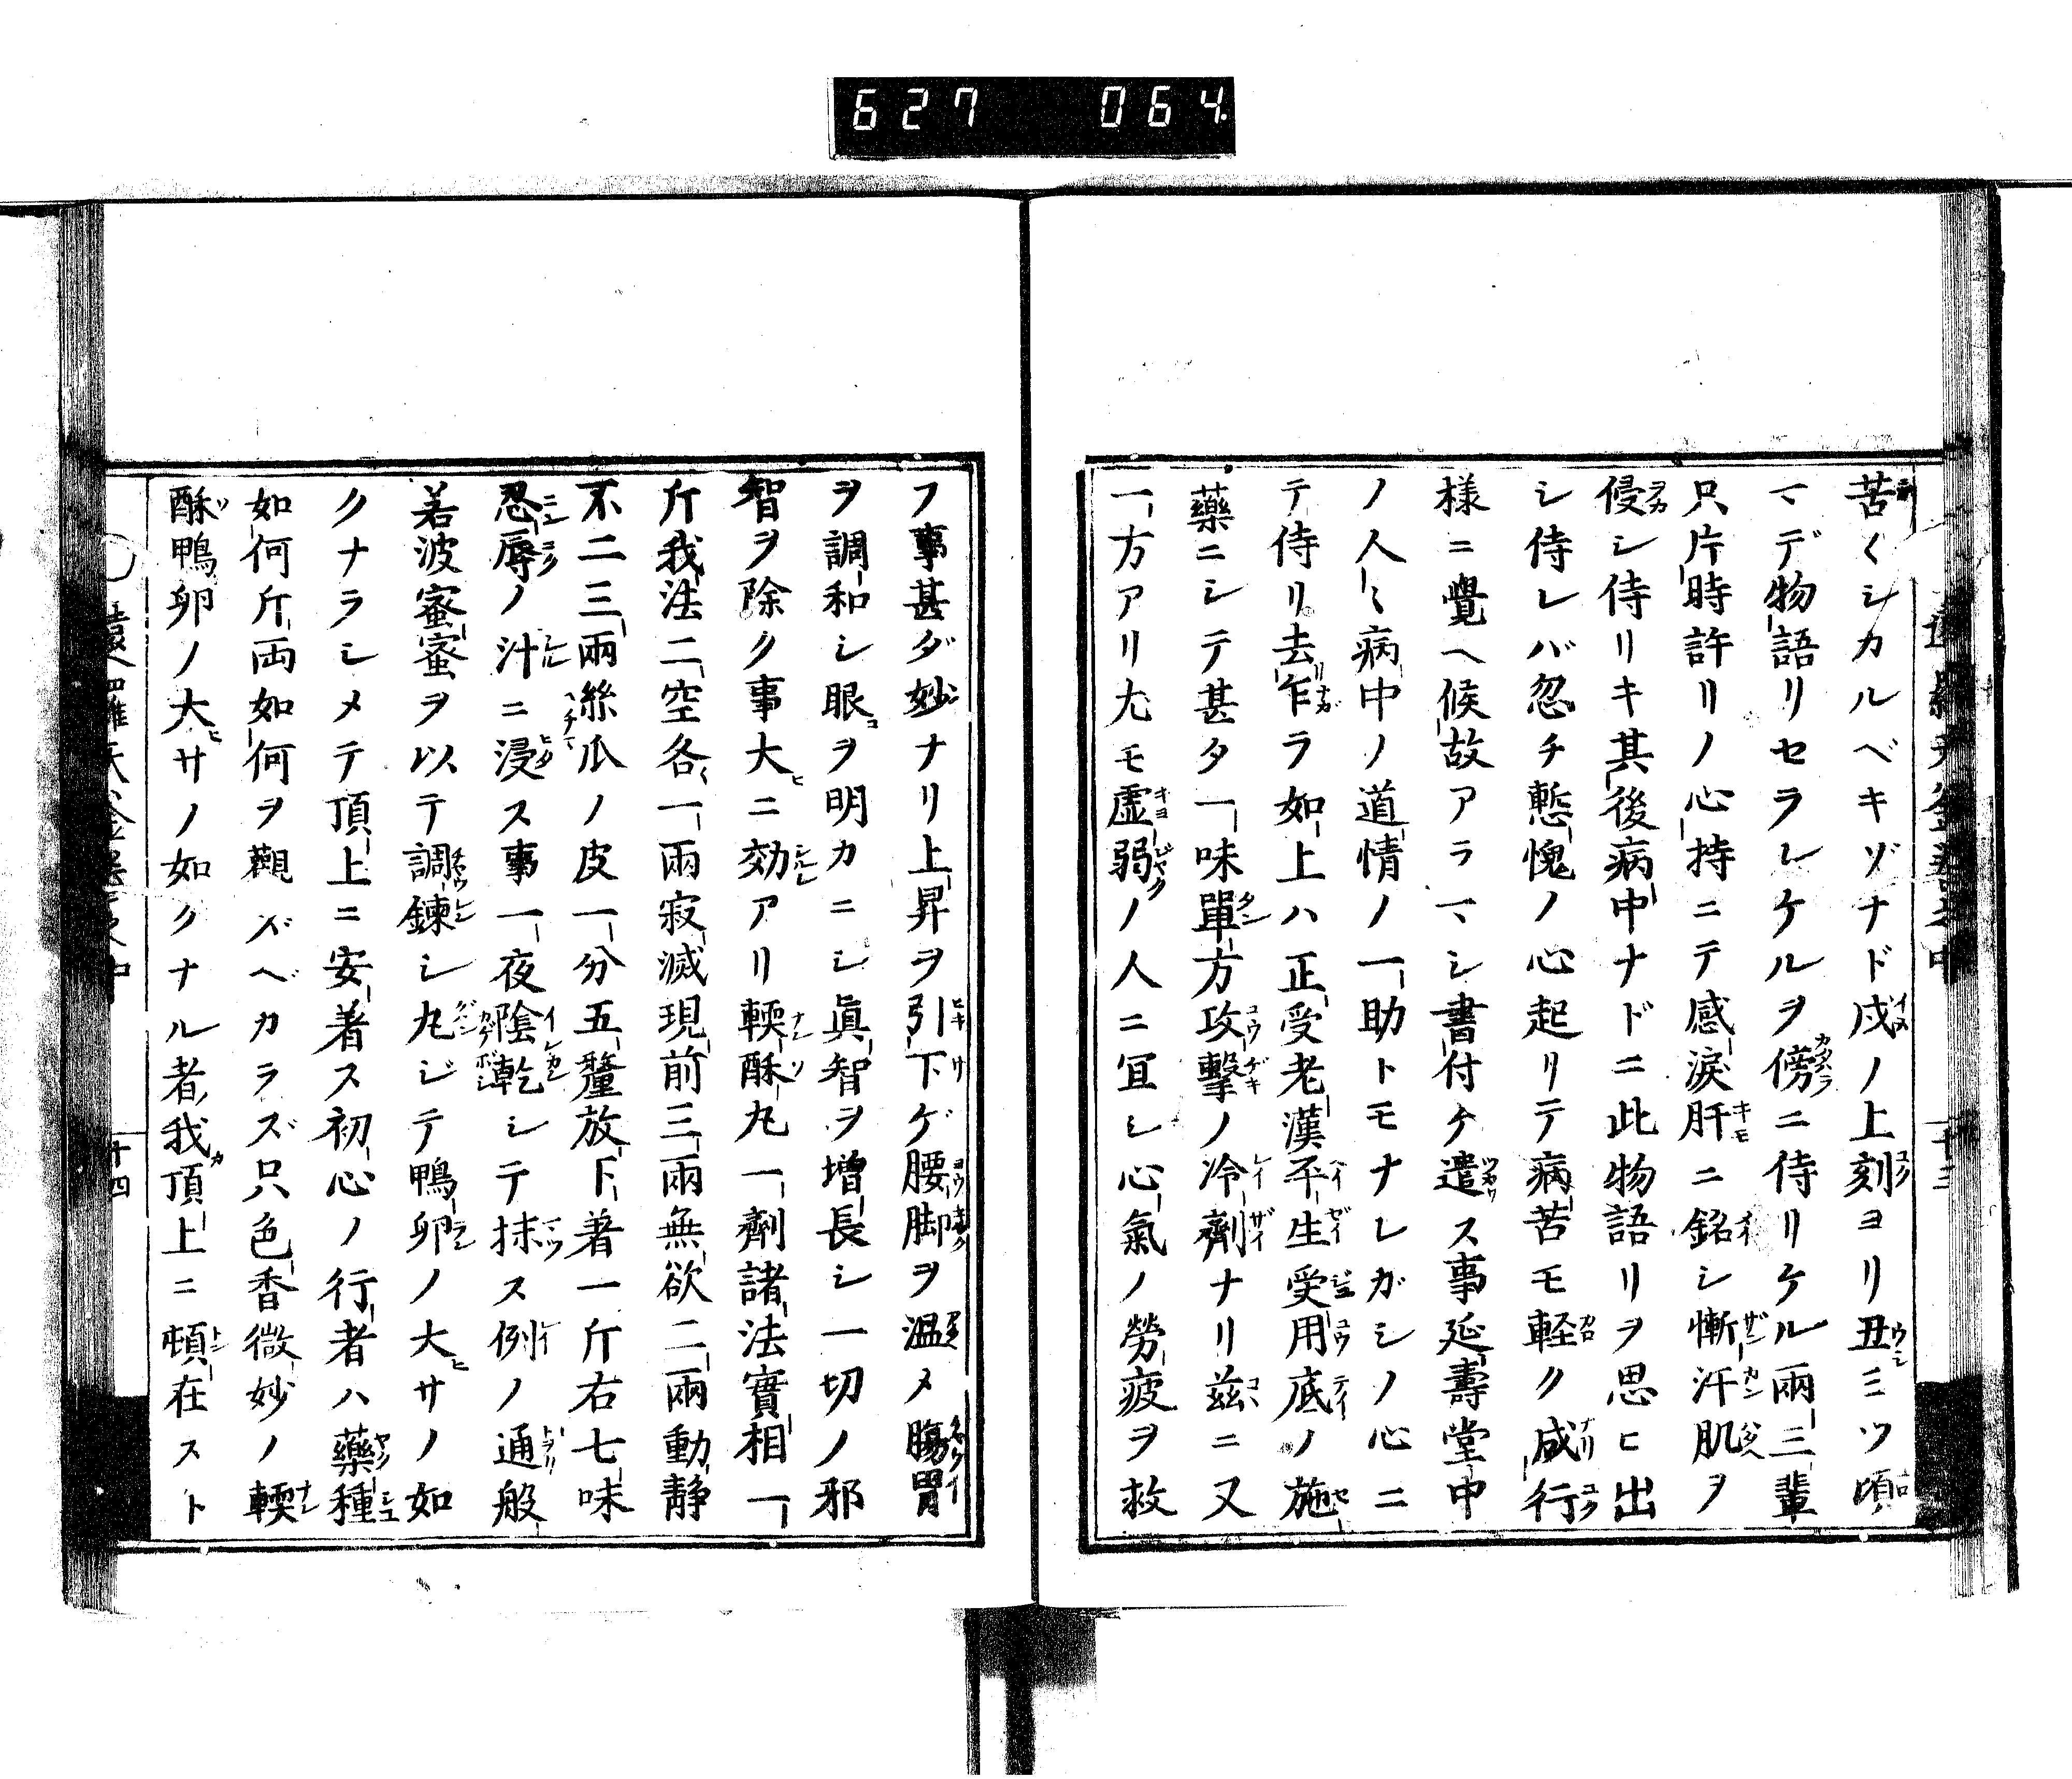 627 064.
苦〱シカルベキゾナド戌ノ上刻ヨリ丑ミツ頃
マデ物語リセラレケルヲ傍ニ侍リケル兩三輩
只片時許リノ心持ニテ感淚肝ニ銘シ慚汗肌ヲ
侵シ侍リキ其後病中ナドニ此物語リヲ思ヒ出
シ侍レバ忽チ慙愧ノ心起リテ病苦モ軽ク咸行
樣ニ覺ヘ候故アラマシ書付ケ遣ス事延壽堂中
ノ人〻病中ノ道情ノ一助トモナレガシノ心ニ
テ侍リ去乍ラ如上ハ正受老漢平生受用底ノ施
藥ニシテ甚タ一味單方攻擊ノ冷劑ナリ茲ニ又
一方アリ尤モ虛弱ノ人ニ冝シ心氣ノ勞疲ヲ救
フ事甚ダ妙ナリ上昇ヲ引下ゲ腰脚ヲ溫メ膓胃
ヲ調和シ眼ヲ明カニシ眞智ヲ增長シ一切ノ邪
智ヲ除ク事大ニ効アリ輭酥丸一劑諸法實相一
斤我法二空各一兩寂滅現前三兩無欲二兩動靜
不二三兩絲瓜ノ皮一分五釐放下著一斤右七味
忍辱ノ汁ニ浸ス事一夜陰乾シテ抹ス例ノ通般
若波蜜蜜ヲ以テ調鍊シ丸ジテ鴨卵ノ大サノ如
クナラシメテ頂上ニ安着ス初心ノ行者ハ藥種
如何斤両如何ヲ觀ズベカラズ只色香微妙ノ輭
酥鴨卵ノ大サノ如クナル者我頂上ニ頓在スト
十四